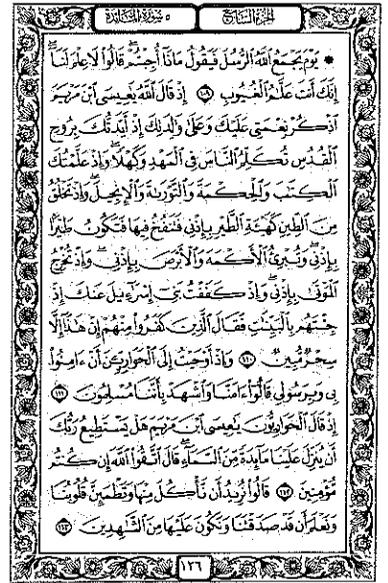 الجزء السابع ٥ سورة المائدة
۞ يَوْمَ يَجْمَعُ اللَّهُ الرُّسُلَ فَيَقُولُ مَاذَا أُجِبْتُمْ قَالُوا لَا عِلْمَ لَنَا
إِنَّكَ أَنتَ عَلَّامُ الْغُيُوبِ ١٠٩ إِذْ قَالَ اللَّهُ يَعِيسَى ابْنَ مَرْيَمَ
اذْكُرْ نِعْمَتِي عَلَيْكَ وَعَلَى وَالِدَتِكَ إِذْ أَيَّدتُّكَ بِرُوحِ
الْقُدُسِ تُكَلِّمُ النَّاسَ فِي الْمَهْدِ وَكَهْلًا وَإِذْ عَلَّمْتُكَ
الْكِتَابَ وَالْحِكْمَةَ وَالتَّوْرَاةَ وَالْإِنجِيلَ وَإِذْ تَخْلُقُ
مِنَ الطِّينِ كَهَيْئَةِ الطَّيْرِ بِإِذْنِي فَتَنفُخُ فِيهَا فَتَكُونُ طَيْرًا
بِإِذْنِي وَتُبْرِئُ الْأَكْمَهَ وَالْأَبْرَصَ بِإِذْنِي وَإِذْ تُخْرِجُ
الْمَوْتَى بِإِذْنِي وَإِذْ كَفَفْتُ بَنِي إِسْرَائِيلَ عَنكَ إِذْ
جِئْتَهُم بِالْبَيِّنَاتِ فَقَالَ الَّذِينَ كَفَرُوا مِنْهُمْ إِنْ هَذَا إِلَّا
سِحْرٌ مُّبِينٌ ١١٠ وَإِذْ أَوْحَيْتُ إِلَى الْحَوَارِيِّينَ أَنْ آمِنُوا
بِي وَبِرَسُولِي قَالُوا آمَنَّا وَاشْهَدْ بِأَنَّنَا مُسْلِمُونَ ١١١
إِذْ قَالَ الْحَوَارِيُّونَ يَعِيسَى ابْنَ مَرْيَمَ هَلْ يَسْتَطِيعُ رَبُّكَ
أَن يُنَزِّلَ عَلَيْنَا مَائِدَةً مِّنَ السَّمَاءِ قَالَ اتَّقُوا اللَّهَ إِن كُنتُم
مُّؤْمِنِينَ ١١٢ قَالُوا نُرِيدُ أَن نَّأْكُلَ مِنْهَا وَتَطْمَئِنَّ قُلُوبُنَا
وَنَعْلَمَ أَن قَدْ صَدَقْتَنَا وَنَكُونَ عَلَيْهَا مِنَ الشَّاهِدِينَ ١١٣
١٢٦